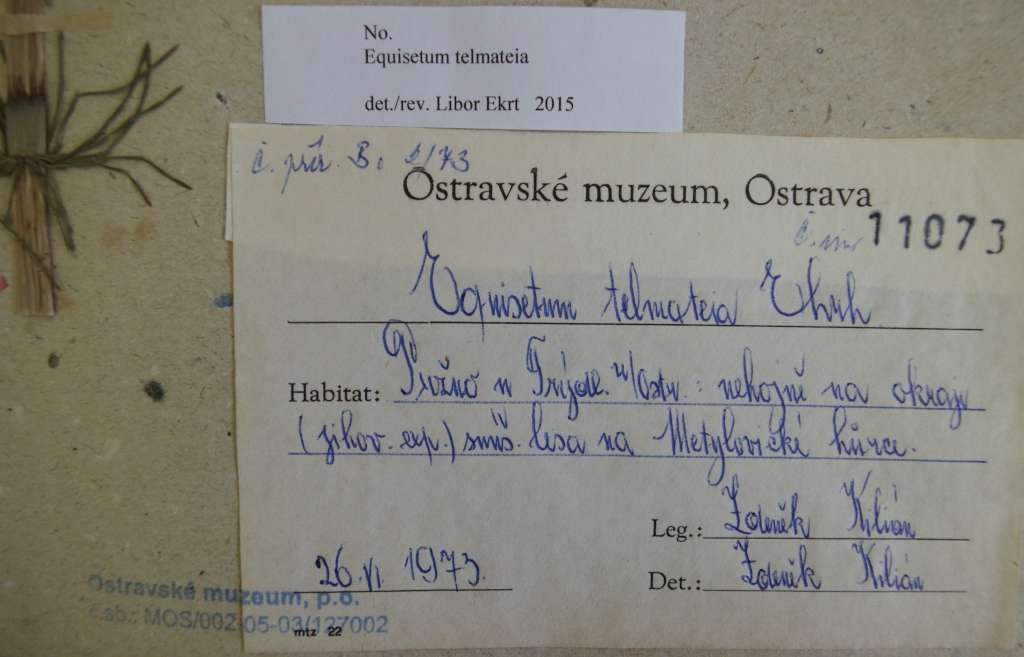 No.
Equisetum telmateia
det./rev. Libor Ekrt 2015
č. přír. B. 2/73
Ostravské muzeum, Ostrava
č. inv. 11073
Equisetum telmateia Ehrh
Habitat: Pržno n Frýdl. n/Ostr.: nehojně na okraji
(jihov. exp.) smíš. lesa na Metylovické hůrce.
Leg.: Zdeněk Kilián
26.VI 1973.
Det.: Zdeněk Kilián
Ostravské muzeum, p.o.
č.sb.: MOS/002-05-03/127002
mtz 22